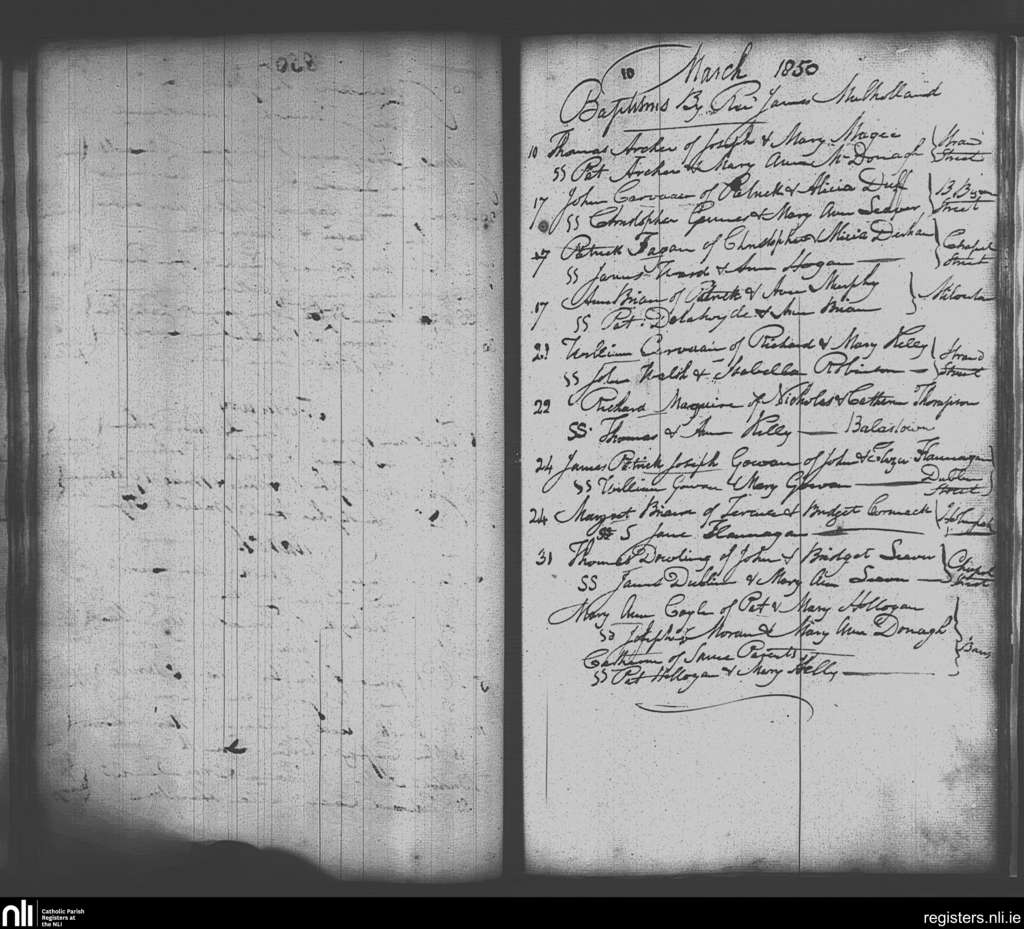 10 March 1850
Baptisms By Rev James Mulholland
10 Thomas Archer of Joseph & Mary Magee
SS Pat Archer & Mary Ann McDonagh Street
17 John of Patrick & Alicia Duff
SS Christopher & Mary Ann Seaver Street
17 Patrick Fagan of Christopher & Alicia Chapel
SS James Ward & Ann Hogan Street
17 Ann Brian of Patrick & Ann Murphy
SS Pat. Delahyde & Ann Brian
21 William of Richard & Mary Kelly Strand
SS John Walsh & Isabella Robinson Street
22 Richard Maguire of Nicholas & Catherine Thompson
SS Thomas & Ann Kelly — Balastown
24 James Patrick Joseph Gowan of John & Flannagan
SS William Gowan & Mary Gowan — Dublin
Street
24 Margret of Terence & Bridget Cormack
SS Jane Flannagan
31 Thomas Dowling of John & Bridget Seaver Chapel
SS James Dublin & Mary Ann Seaver — Street
Mary Ann Coyle of Pat & Mary Hollogan
SS Joseph Moran & Mary Ann Donagh
Catherine of Same Parents
SS Pat Hollogan & Mary Kelly
nli
Catholic Parish
Registers at
the NLI
registers.nli.ie